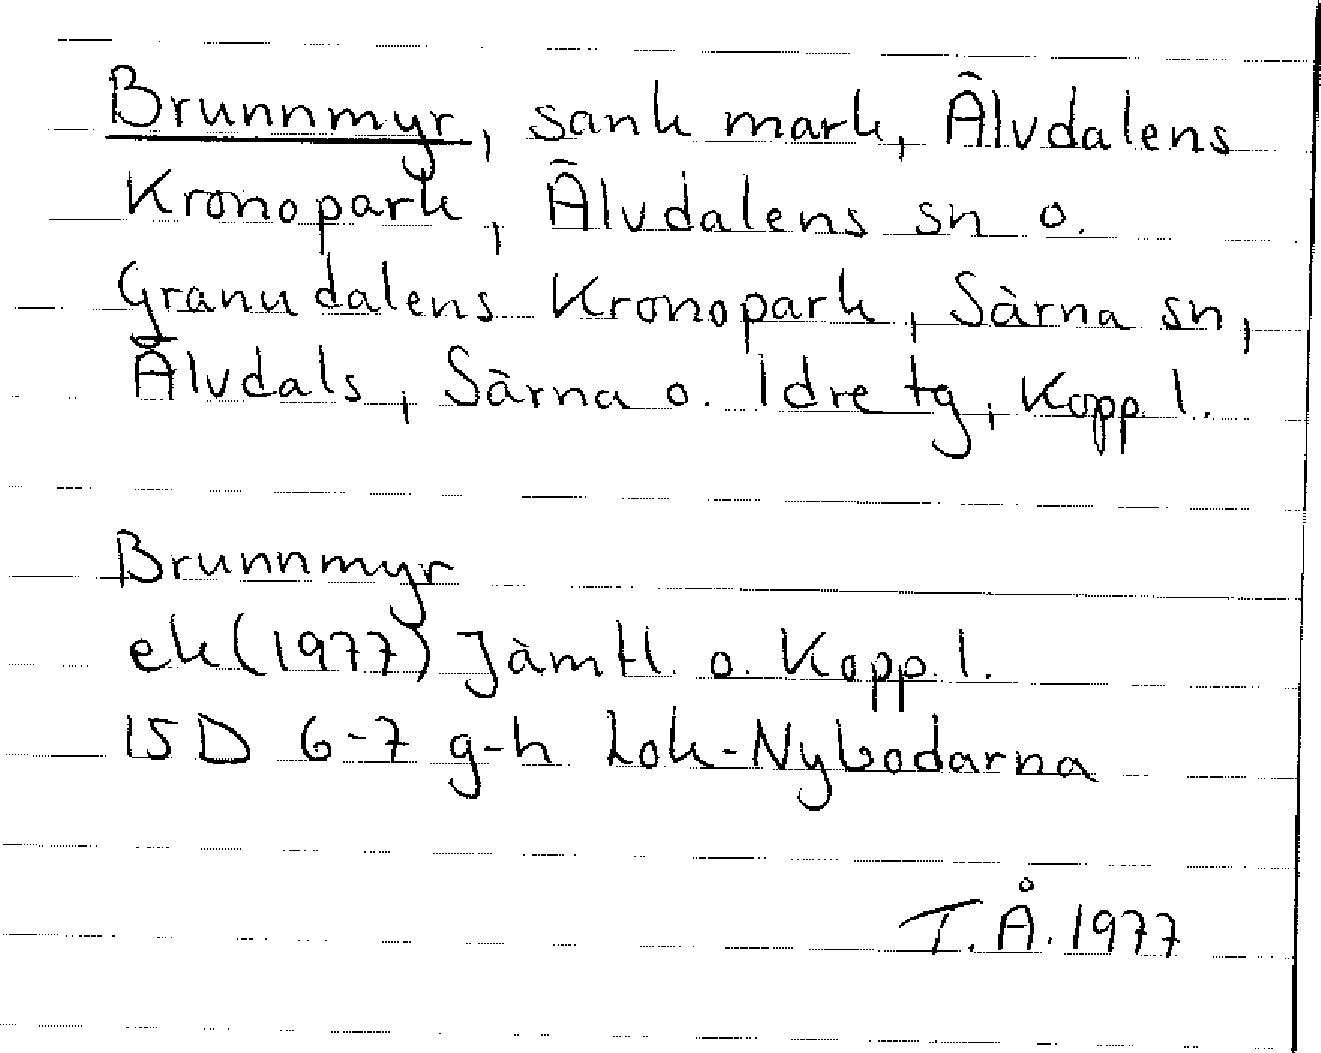 Brunnmyr, sank mark, Älvdalens
Kronopark, Älvdalens sn o.
Granudalens Kronopark, Särna sn,
Älvdals, Särna o. Idre tg, Kopp. l.
Brunnmyr
ek (1977) Jämtl. o. Kopp. l.
15 D 6-7 g-h Lok-Nybodarna
T.Å. 1977